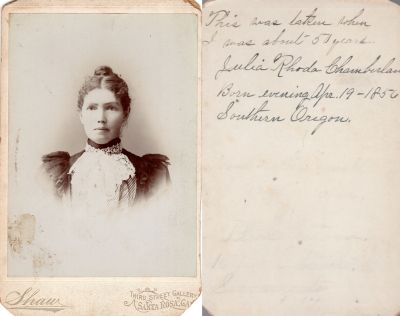 Shaw
THIRD STREET GALLERY
SANTA ROSA, CAL
This was taken when
I was about 57 years.
Julia Rhoda Chamberlan
Born evening Apr. 19-185
Southern Origon.